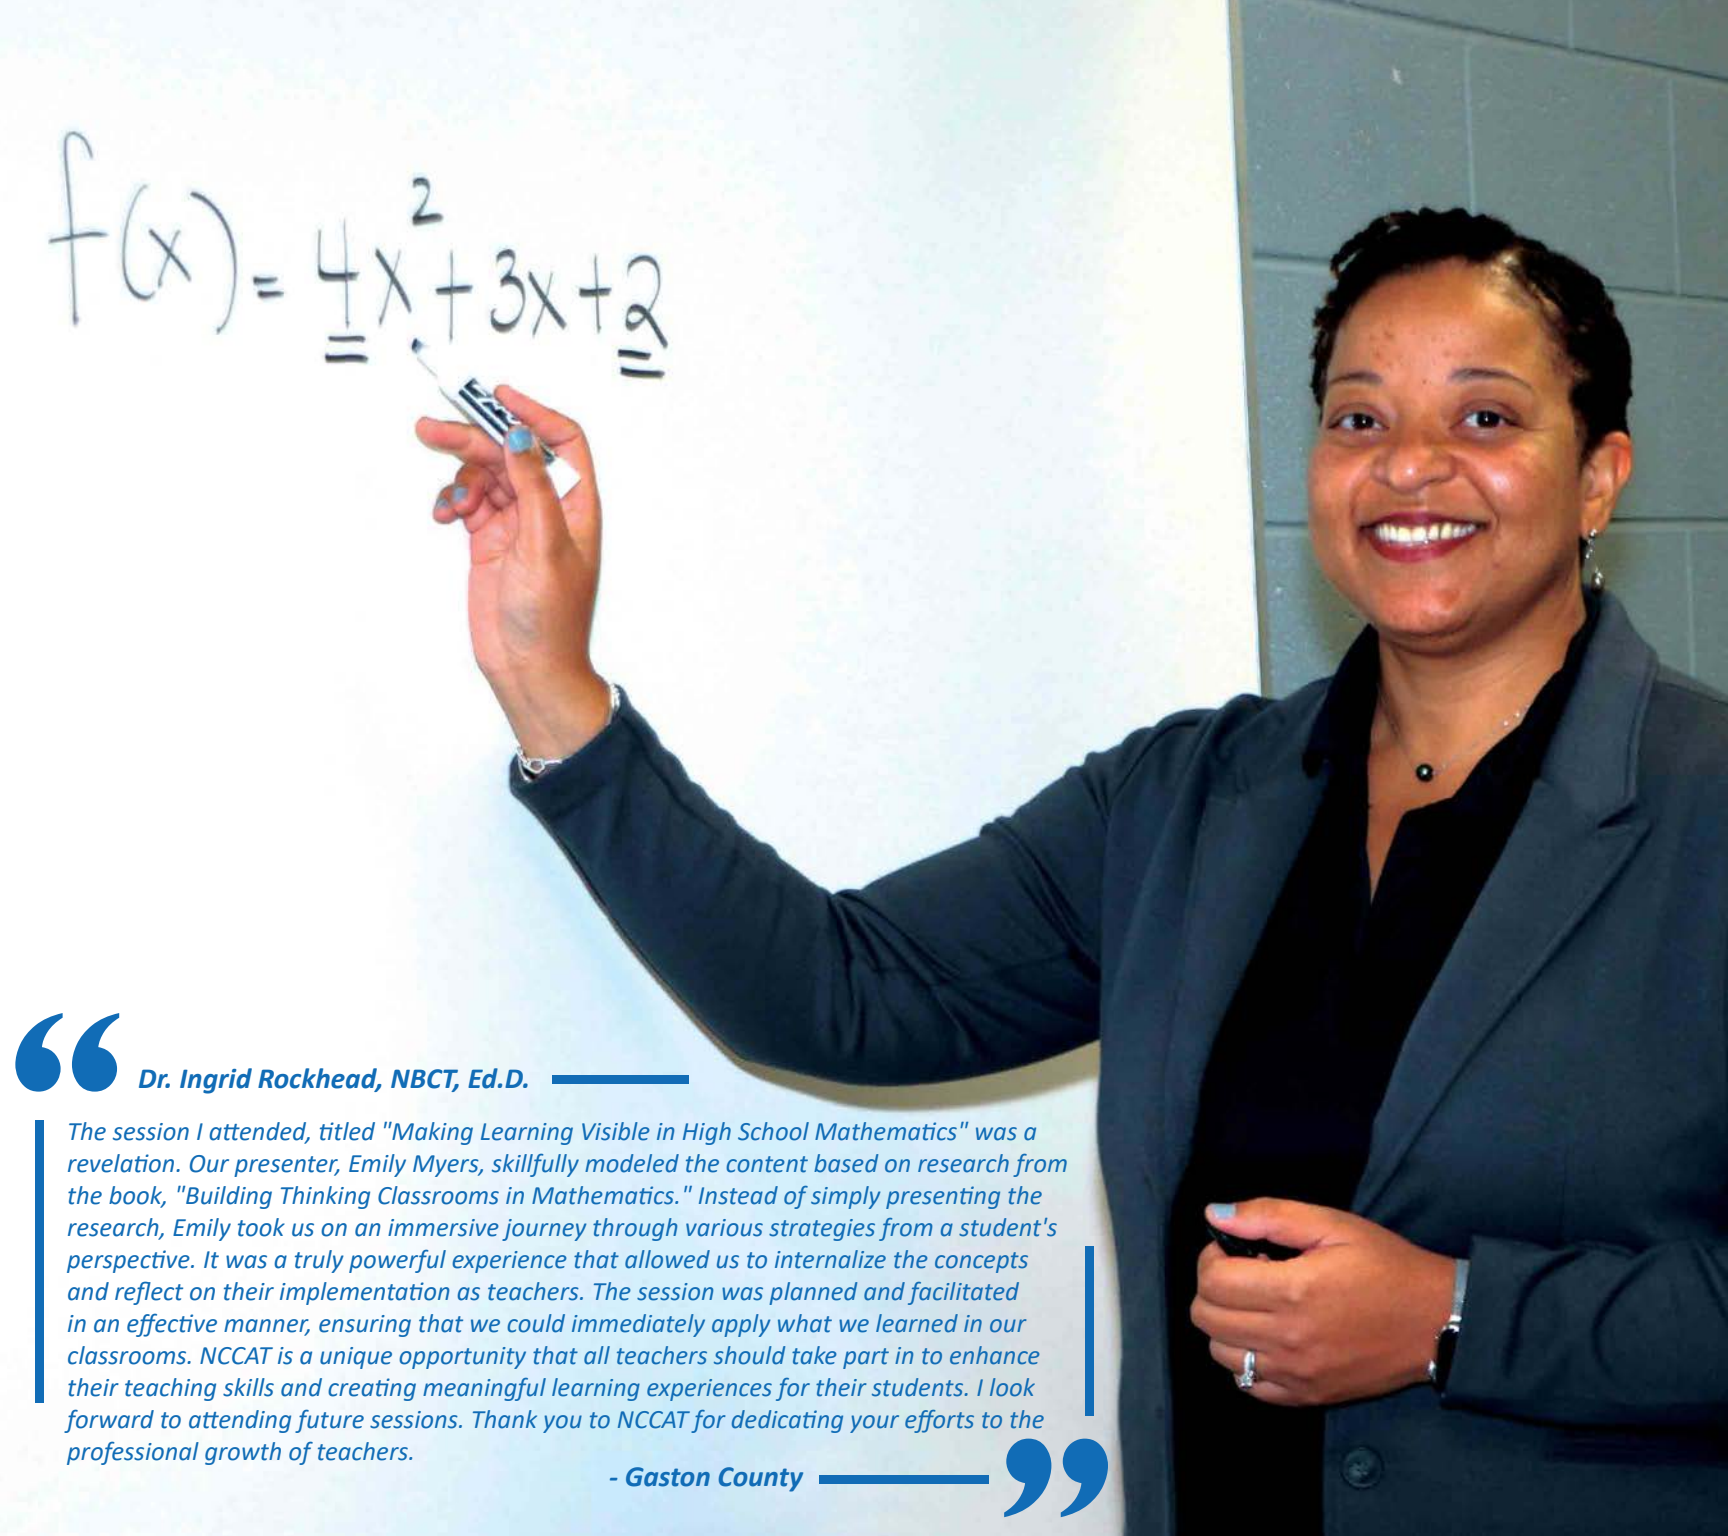 f(x) = 4x² + 3x + 2
Dr. Ingrid Rockhead, NBCT, Ed.D.
The session I attended, titled "Making Learning Visible in High School Mathematics" was a
revelation. Our presenter, Emily Myers, skillfully modeled the content based on research from
the book, "Building Thinking Classrooms in Mathematics." Instead of simply presenting the
research, Emily took us on an immersive journey through various strategies from a student's
perspective. It was a truly powerful experience that allowed us to internalize the concepts
and reflect on their implementation as teachers. The session was planned and facilitated
in an effective manner, ensuring that we could immediately apply what we learned in our
classrooms. NCCAT is a unique opportunity that all teachers should take part in to enhance
their teaching skills and creating meaningful learning experiences for their students. I look
forward to attending future sessions. Thank you to NCCAT for dedicating your efforts to the
professional growth of teachers.
- Gaston County